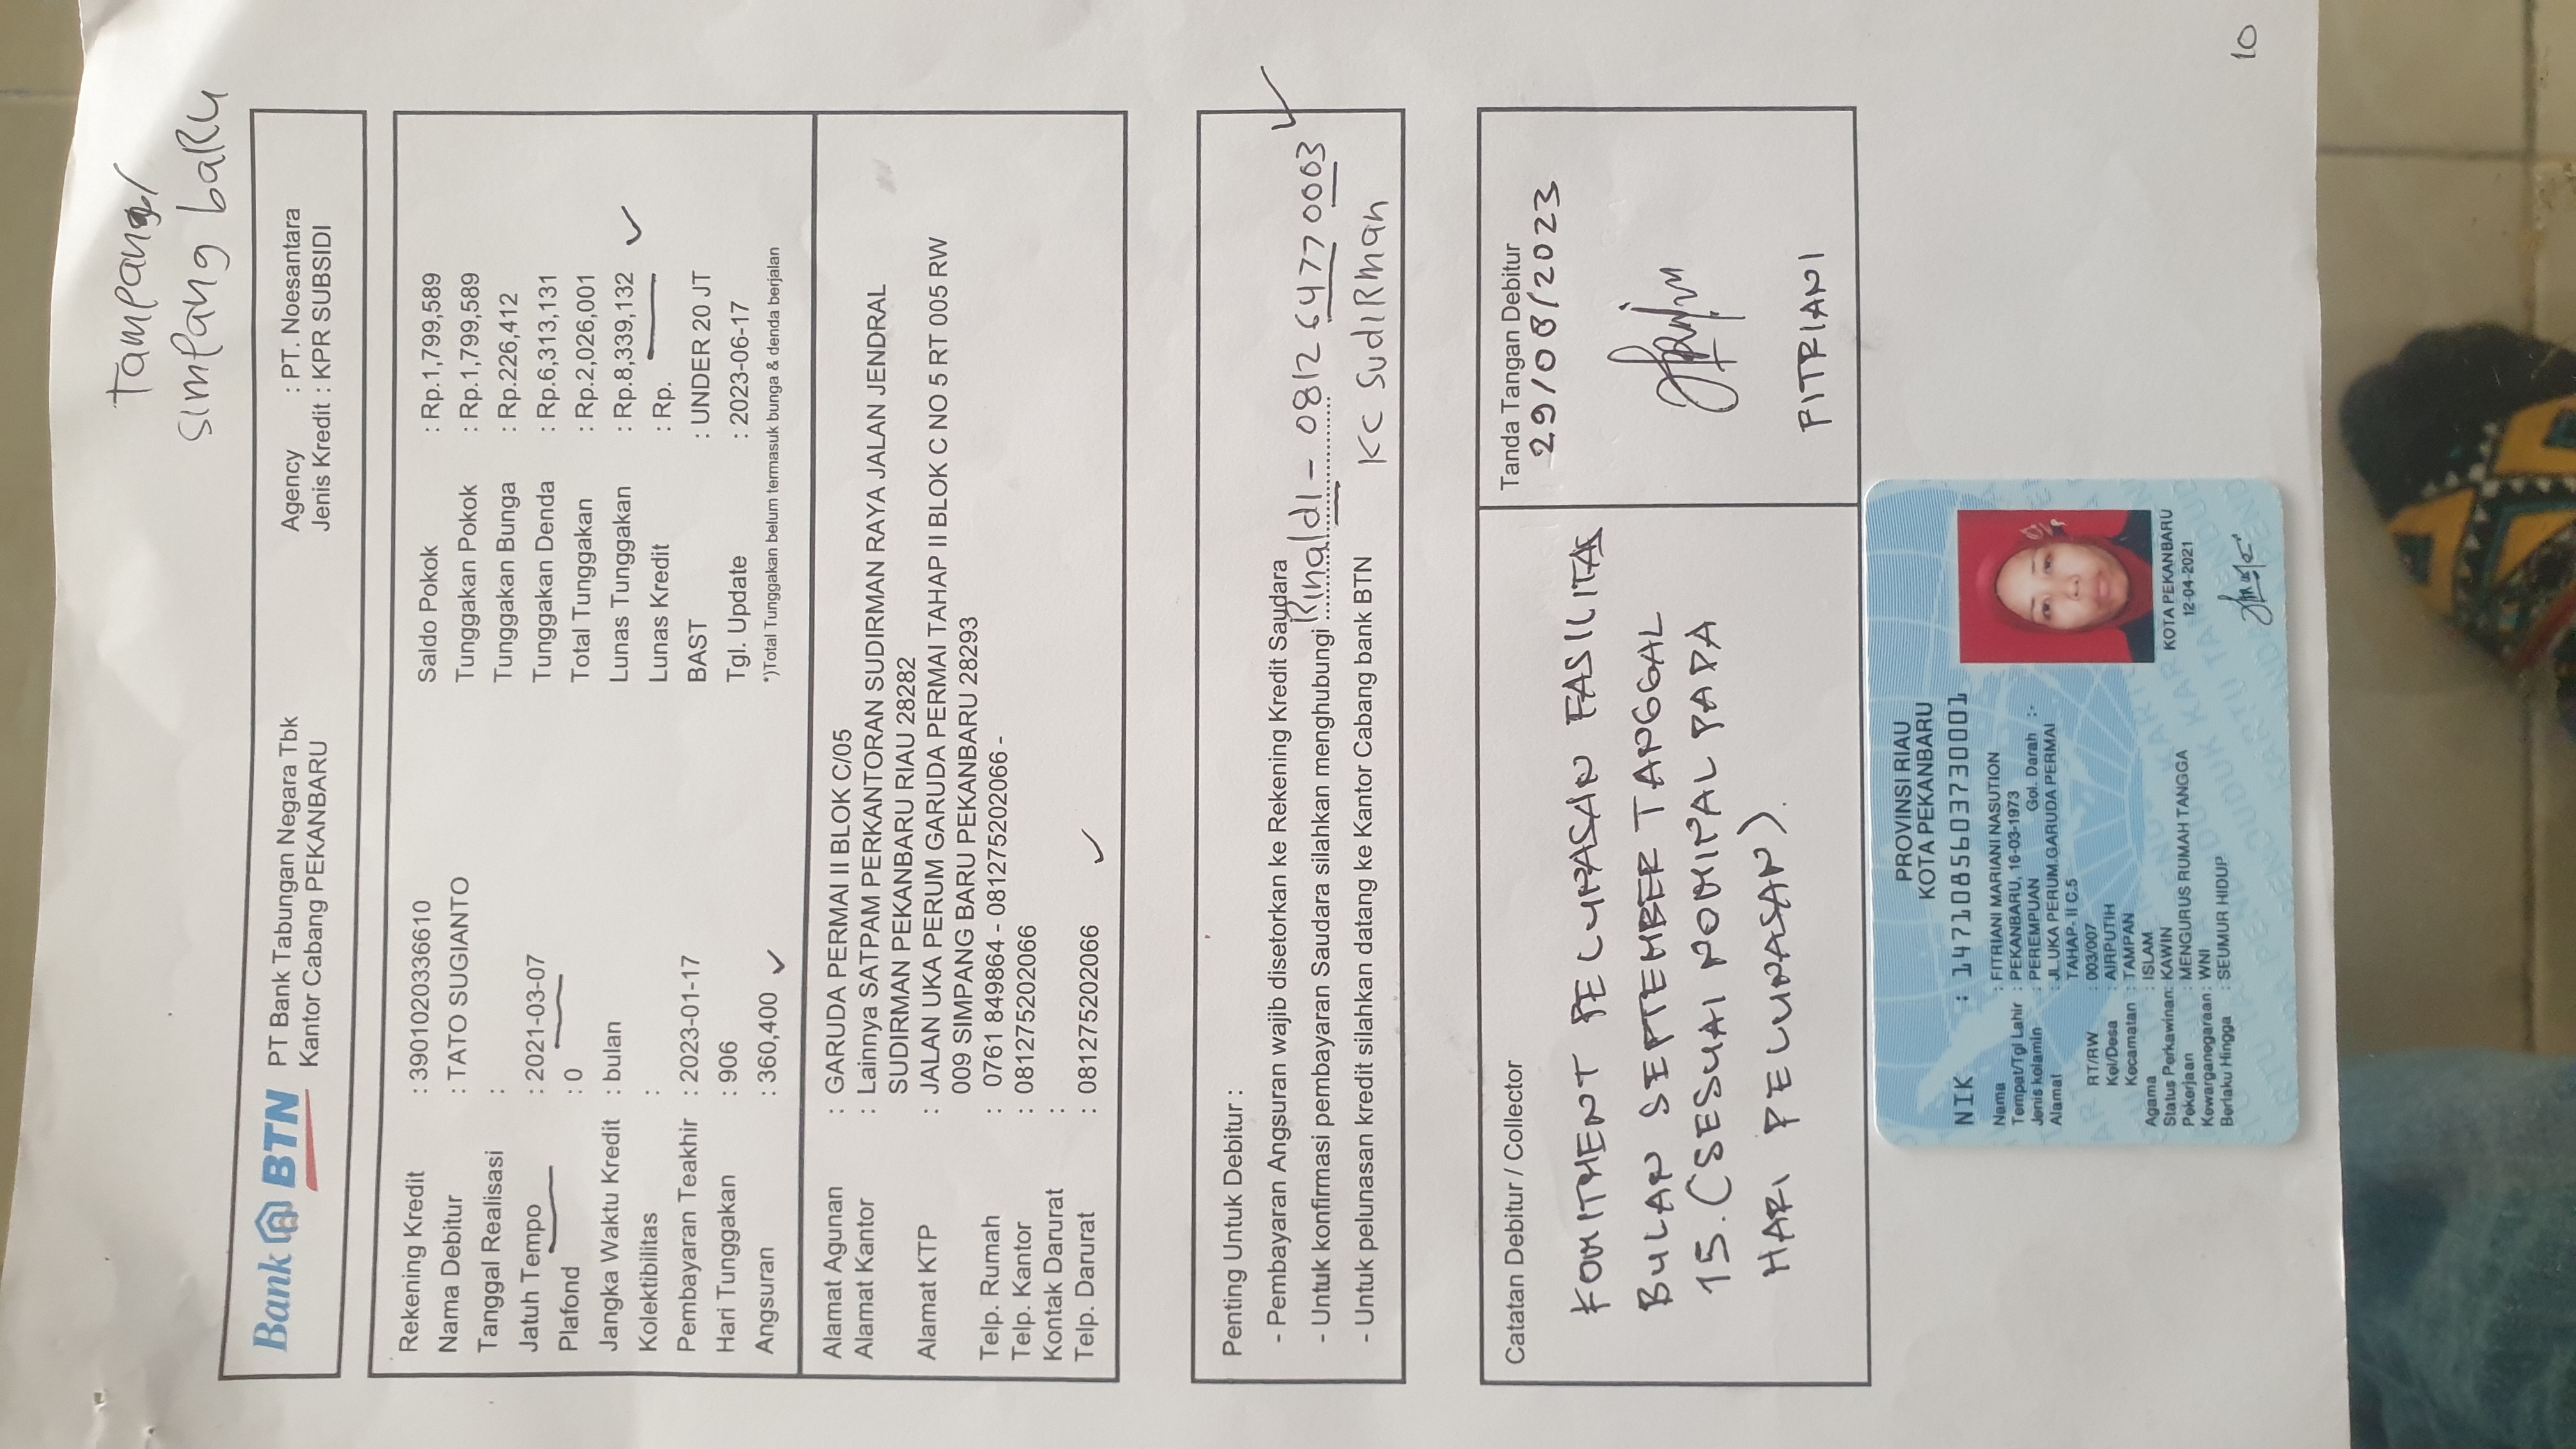 Tampang/
Simpang baru
Bank BTN
PT Bank Tabungan Negara Tbk
Kantor Cabang PEKANBARU
Agency : PT. Noesantara
Jenis Kredit : KPR SUBSIDI
Rekening Kredit : 3901020336610
Nama Debitur : TATO SUGIANTO
Tanggal Realisasi :
Jatuh Tempo : 2021-03-07
Plafond : 0
Jangka Waktu Kredit : bulan
Kolektibilitas :
Pembayaran Teakhir : 2023-01-17
Hari Tunggakan : 906
Angsuran : 360,400
Saldo Pokok : Rp.1,799,589
Tunggakan Pokok : Rp.1,799,589
Tunggakan Bunga : Rp.226,412
Tunggakan Denda : Rp.6,313,131
Total Tunggakan : Rp.2,026,001
Lunas Tunggakan : Rp.8,339,132
Lunas Kredit : Rp.
BAST : UNDER 20 JT
Tgl. Update : 2023-06-17
*)Total Tunggakan belum termasuk bunga & denda berjalan
Alamat Agunan : GARUDA PERMAI II BLOK C/05
Alamat Kantor : Lainnya SATPAM PERKANTORAN SUDIRMAN RAYA JALAN JENDRAL
SUDIRMAN PEKANBARU RIAU 28282
Alamat KTP : JALAN UKA PERUM GARUDA PERMAI TAHAP II BLOK C NO 5 RT 005 RW
009 SIMPANG BARU PEKANBARU 28293
Telp. Rumah : 0761 849864 - 081275202066 -
Telp. Kantor : 081275202066
Kontak Darurat :
Telp. Darurat : 081275202066
Penting Untuk Debitur :
- Pembayaran Angsuran wajib disetorkan ke Rekening Kredit Saudara
- Untuk konfirmasi pembayaran Saudara silahkan menghubungi Rinaldi - 0812 6477 0003
- Untuk pelunasan kredit silahkan datang ke Kantor Cabang bank BTN KC Sudirman
Catatan Debitur / Collector
KOMITMENT PELUNASAN FASILITAS
BULAN SEPTEMBER TANGGAL
15. (SESUAI NOMINAL PADA
HARI PELUNASAN).
Tanda Tangan Debitur
29/08/2023
FITRIANI
PROVINSI RIAU
KOTA PEKANBARU
NIK : 1471085603730001
Nama : FITRIANI MARIANI NASUTION
Tempat/Tgl Lahir : PEKANBARU, 16-03-1973
Jenis kelamin : PEREMPUAN Gol. Darah :-
Alamat : JL.UKA PERUM.GARUDA PERMAI
TAHAP- II C.5
RT/RW : 003/007
Kel/Desa : AIRPUTIH
Kecamatan : TAMPAN
Agama : ISLAM
Status Perkawinan: KAWIN
Pekerjaan : MENGURUS RUMAH TANGGA
Kewarganegaraan: WNI
Berlaku Hingga : SEUMUR HIDUP
KOTA PEKANBARU
12-04-2021
10